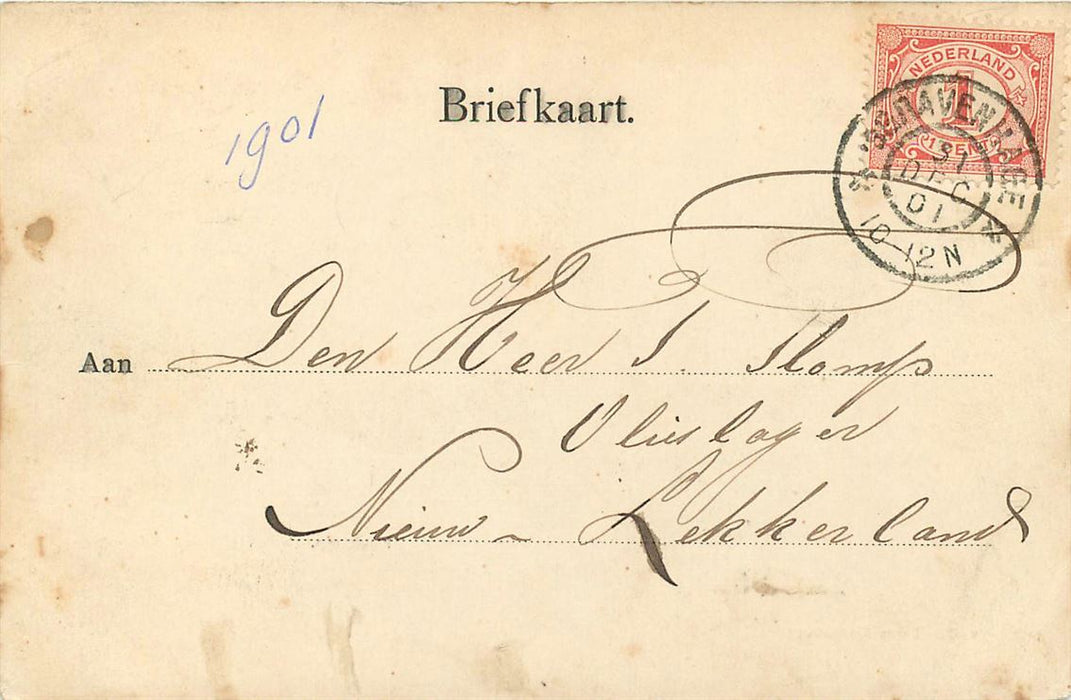 Briefkaart.
1901
NEDERLAND
1
1 CENT
'S GRAVENHAGE
31
DEC
01
10-12N
Aan Den Heer J. Stomp
Nieuw-Lekkerland